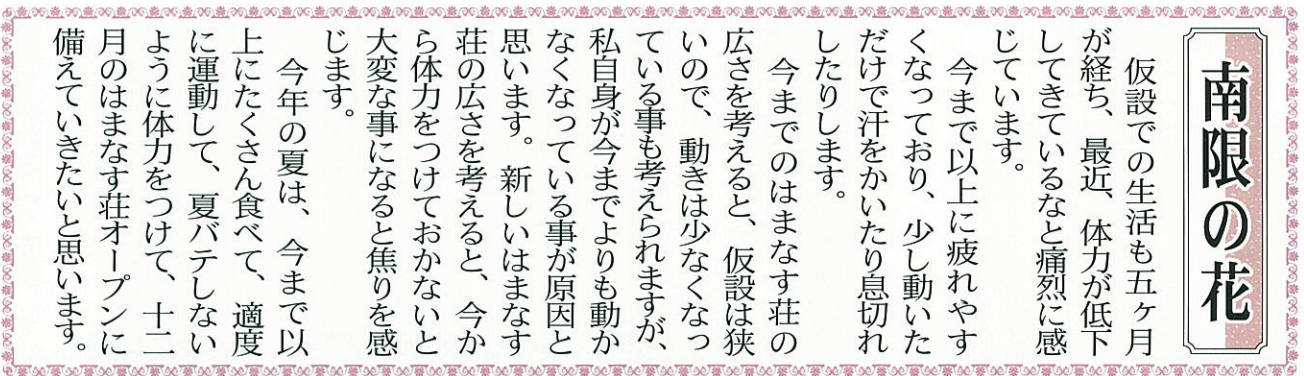 南限の花
仮設での生活も五ヶ月
が経ち、最近、体力が低下
してきているなと痛烈に感
じています。
今まで以上に疲れやす
くなっており、少し動いた
だけで汗をかいたり息切れ
したりします。
今までのはまなす荘の
広さを考えると、仮設は狭
いので、動きは少なくなっ
ている事も考えられますが、
私自身が今までよりも動か
なくなっている事が原因と
思います。新しいはまなす
荘の広さを考えると、今か
ら体力をつけておかないと
大変な事になると焦りを感
じます。
今年の夏は、今まで以
上にたくさん食べて、適度
に運動して、夏バテしない
ように体力をつけて、十二
月のはまなす荘オープンに
備えていきたいと思います。